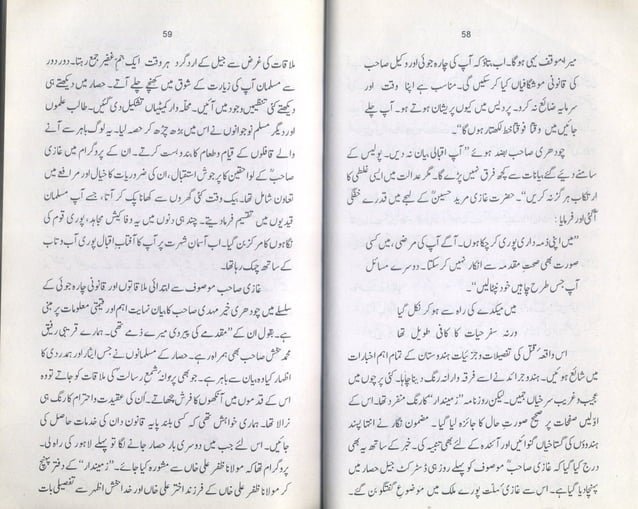 58
میرا موقف یہی ہو گا۔ اب بتاؤ کہ آپ کی چارہ جوئی اور وکیل صاحب
کی قانونی موشگافیاں کیا کر سکیں گی۔ مناسب ہے اپنا وقت اور
سرمایہ ضائع نہ کرد۔ پردیس میں کیوں پریشان ہوتے ہو۔ آپ چلے
جائیں میں وقتاً فوقتاً خط لکھتا رہوں گا"۔
چودھری صاحب بضد ہوئے "آپ اقبالی بیان نہ دیں۔ پولیس کے
سامنے دیئے گئے بیانات سے کچھ فرق نہیں پڑے گا۔ مگر عدالت میں ایسی غلطی کا
ارتکاب ہرگز نہ کریں"۔ حضرت غازی مرید حسینؒ کے لہجے میں قدرے خفگی
آ گئی اور فرمایا:
"میں اپنی ذمہ داری پوری کر چکا ہوں۔ آگے آپ کی مرضی، میں کسی
صورت بھی صحتِ مقدمہ سے انکار نہیں کر سکتا۔ دوسرے مسائل
آپ جس طرح چاہیں خود نپٹا لیں"۔
میں میکدے کی راہ سے ہو کر نکل گیا
ورنہ سفر حیات کا کافی طویل تھا
اس واقعہ قتل کی تفصیلات و جزئیات ہندوستان کے تمام اہم اخبارات
میں شائع ہوئیں۔ ہندو جرائد نے اسے فرقہ وارانہ رنگ دینا چاہا۔ کئی پرچوں میں
عجیب و غریب سرخیاں جمیں۔ لیکن روزنامہ "زمیندار" کا رنگ منفرد تھا۔ اس کے
اوّلیں صفحات پر صحیح صورتِ حال کا جائزہ لیا گیا۔ مضمون نگار نے انتہا پسند
ہندوؤں کی گستاخیاں گنوائیں اور آئندہ کے لئے بھی تنبیہہ کی۔ خبر کے ساتھ یہ بھی
درج کیا گیا کہ غازی صاحبؒ موصوف کو پہلے روز ہی ڈسٹرکٹ جیل حصار میں
پہنچا دیا گیا ہے۔ اس سے غازی ملت پورے ملک میں موضوعِ گفتگو بن گئے۔
59
ملاقات کی غرض سے جیل کے ارد گرد ہر وقت ایک جم غفیر جمع رہتا۔ دور دور
سے مسلمان آپ کی زیارت کے شوق میں کھنچے چلے آتے۔ حصار میں دیکھتے ہی
دیکھتے کئی تنظیمیں وجود میں آئیں۔ محلہ دار کمیٹیاں تشکیل دی گئیں۔ طالب علموں
اور دیگر مسلم نوجوانوں نے اس میں بڑھ چڑھ کر حصہ لیا۔ یہ لوگ باہر سے آنے
والے قافلوں کے قیام و طعام کا بندوبست کرتے۔ ان کے پروگرام میں غازی
صاحبؒ کے لواحقین کا پرجوش استقبال، ان کی ضروریات کا خیال اور مرافعے میں
تعاون شامل تھا۔ بیک وقت کئی گھروں سے کھانا پک کر آتا، جسے آپ مسلمان
قیدیوں میں تقسیم فرما دیتے۔ چند ہی دنوں میں یہ وفا کیش مجاہد، پوری قوم کی
نگاہوں کا مرکز بن گیا۔ اب آسمانِ شہرت پر آپ کا آفتابِ اقبال پوری آب و تاب
کے ساتھ چمک رہا تھا۔
غازی صاحب موصوف سے ابتدائی ملاقاتوں اور قانونی چارہ جوئی کے
سلسلے میں چودھری خیر مہدی صاحب کا بیان نہایت اہم اور قیمتی معلومات پر مبنی
ہے۔ بقول ان کے "مقدمے کی پیروی میرے ذمے تھی۔ ہمارے قریبی رفیق
محمد بخش صاحب بھی ہمراہ رہے۔ حصار کے مسلمانوں نے جس ایثار اور ہمدردی کا
اظہار کیا وہ بیان سے باہر ہے۔ جو بھی پروانۂ شمع رسالت کی ملاقات کو جاتے تو وہ
اس کے قدموں میں آنکھوں کا فرش بچھاتے۔ اُن کی عقیدت و احترام کا رنگ ہی
نرالا تھا۔ ہماری خواہش تھی کہ کسی بلند پایہ قانون دان کی خدمات حاصل کی
جائیں۔ اس لئے جب میں دوسری بار حصار جانے لگا تو پہلے لاہور کی راہ لی۔
پروگرام تھا کہ مولانا ظفر علی خاں سے مشورہ کیا جائے۔ "زمیندار" کے دفتر پہنچ
کر مولانا ظفر علی خاں کے فرزند اختر علی خاں اور خدا بخش اظہر سے تفصیلی بات